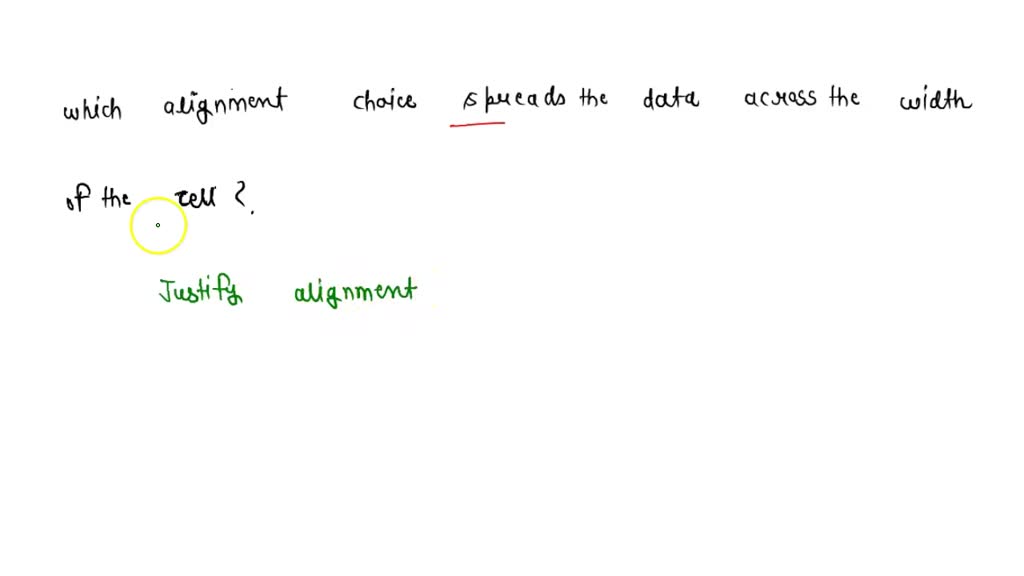 which alignment choice spreads the data across the width
of the cell ?
Justify alignment